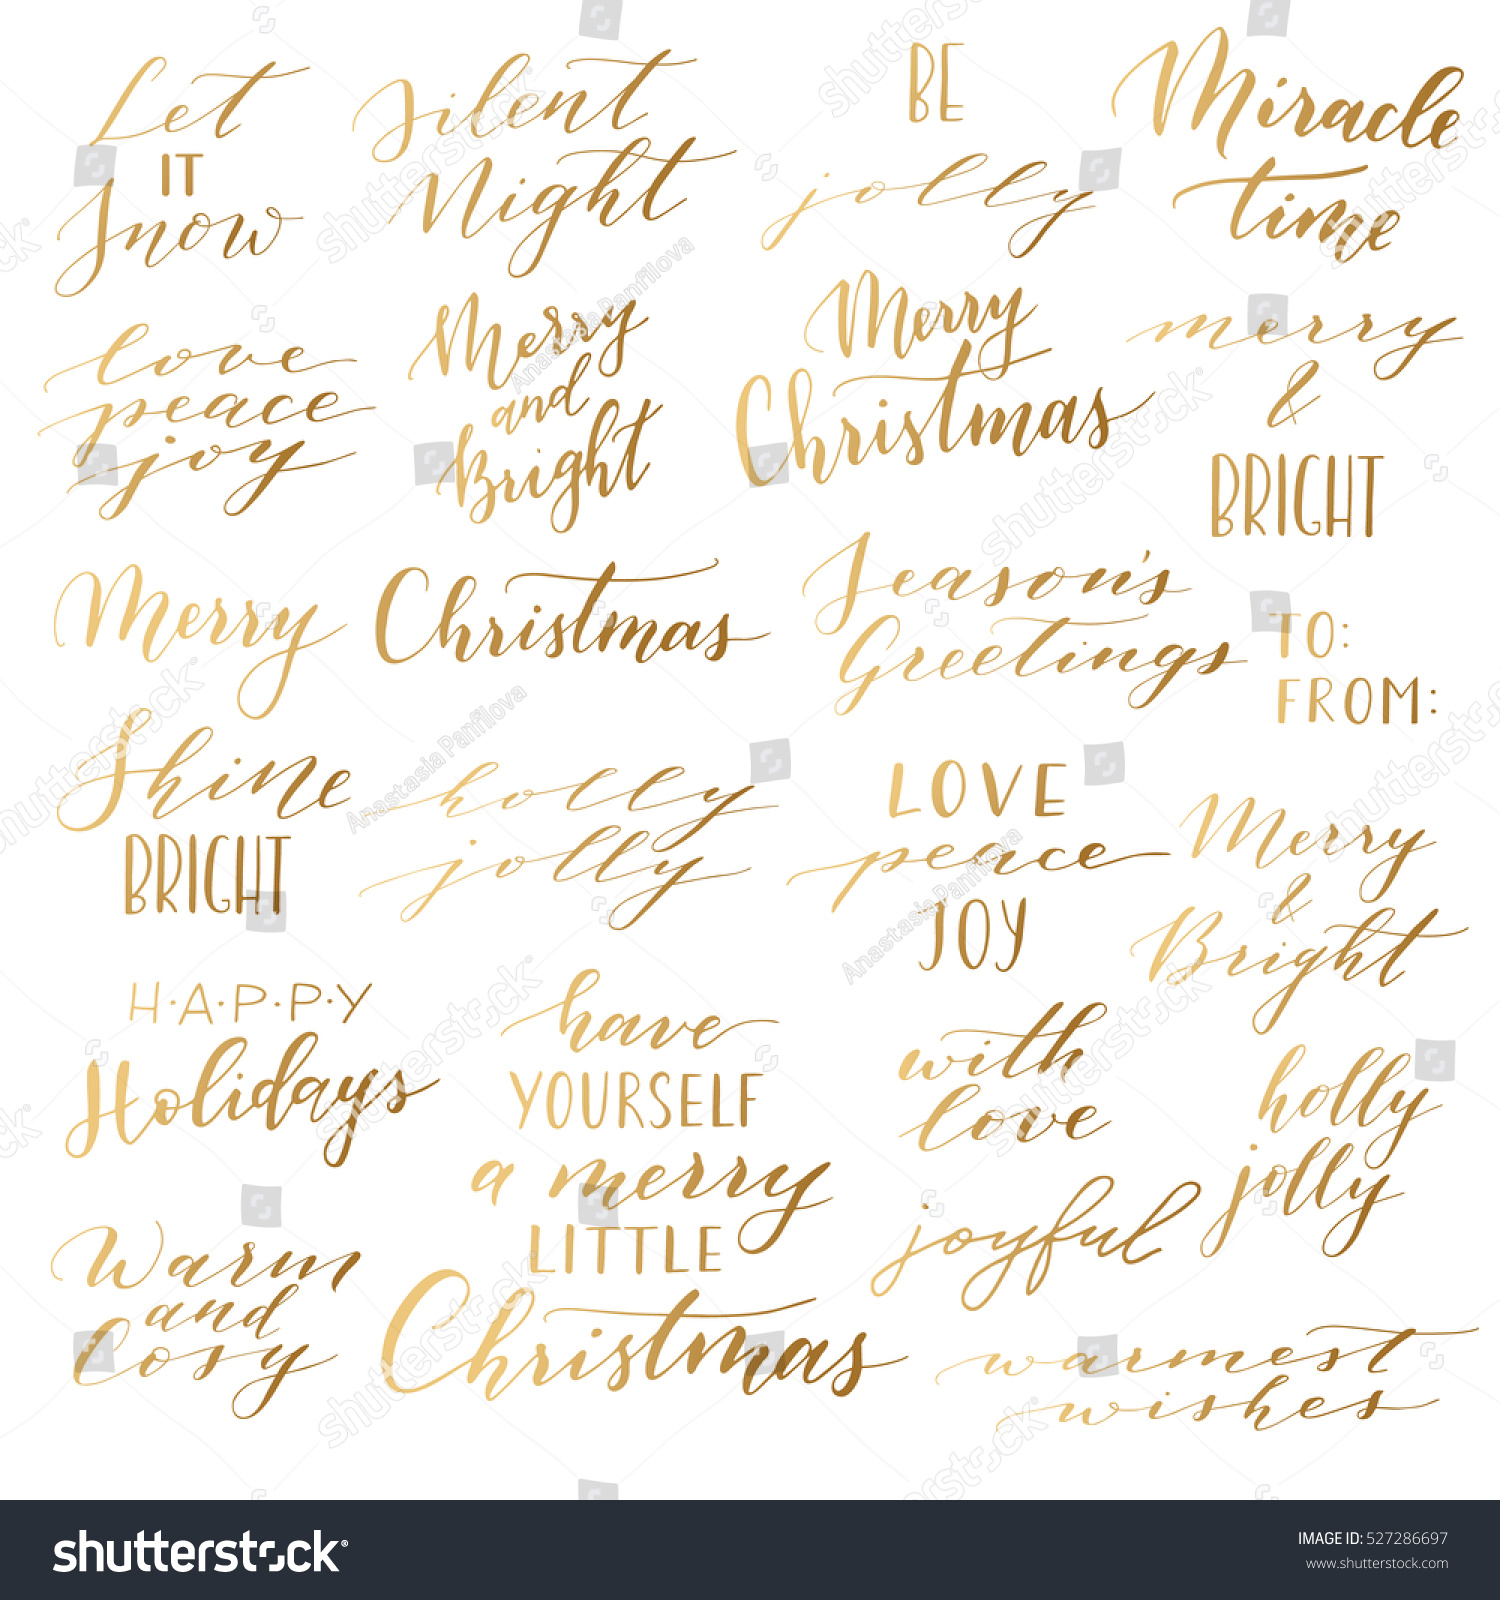 Let
IT
Snow
Silent
Night
BE
jolly
Miracle
time
love
peace
joy
Merry
and
Bright
Merry
Christmas
merry
&
BRIGHT
Merry Christmas
Season's
Greetings
TO:
FROM:
Shine
BRIGHT
holly
jolly
LOVE
peace
JOY
Merry
&
Bright
H·A·P·P·Y
Holidays
have
YOURSELF
a merry
LITTLE
Christmas
with
love
holly
jolly
joyful
Warm
and
Cosy
warmest
wishes
shutterstock
Anastasia Panfilova
shutterstock
IMAGE ID: 527286697
www.shutterstock.com